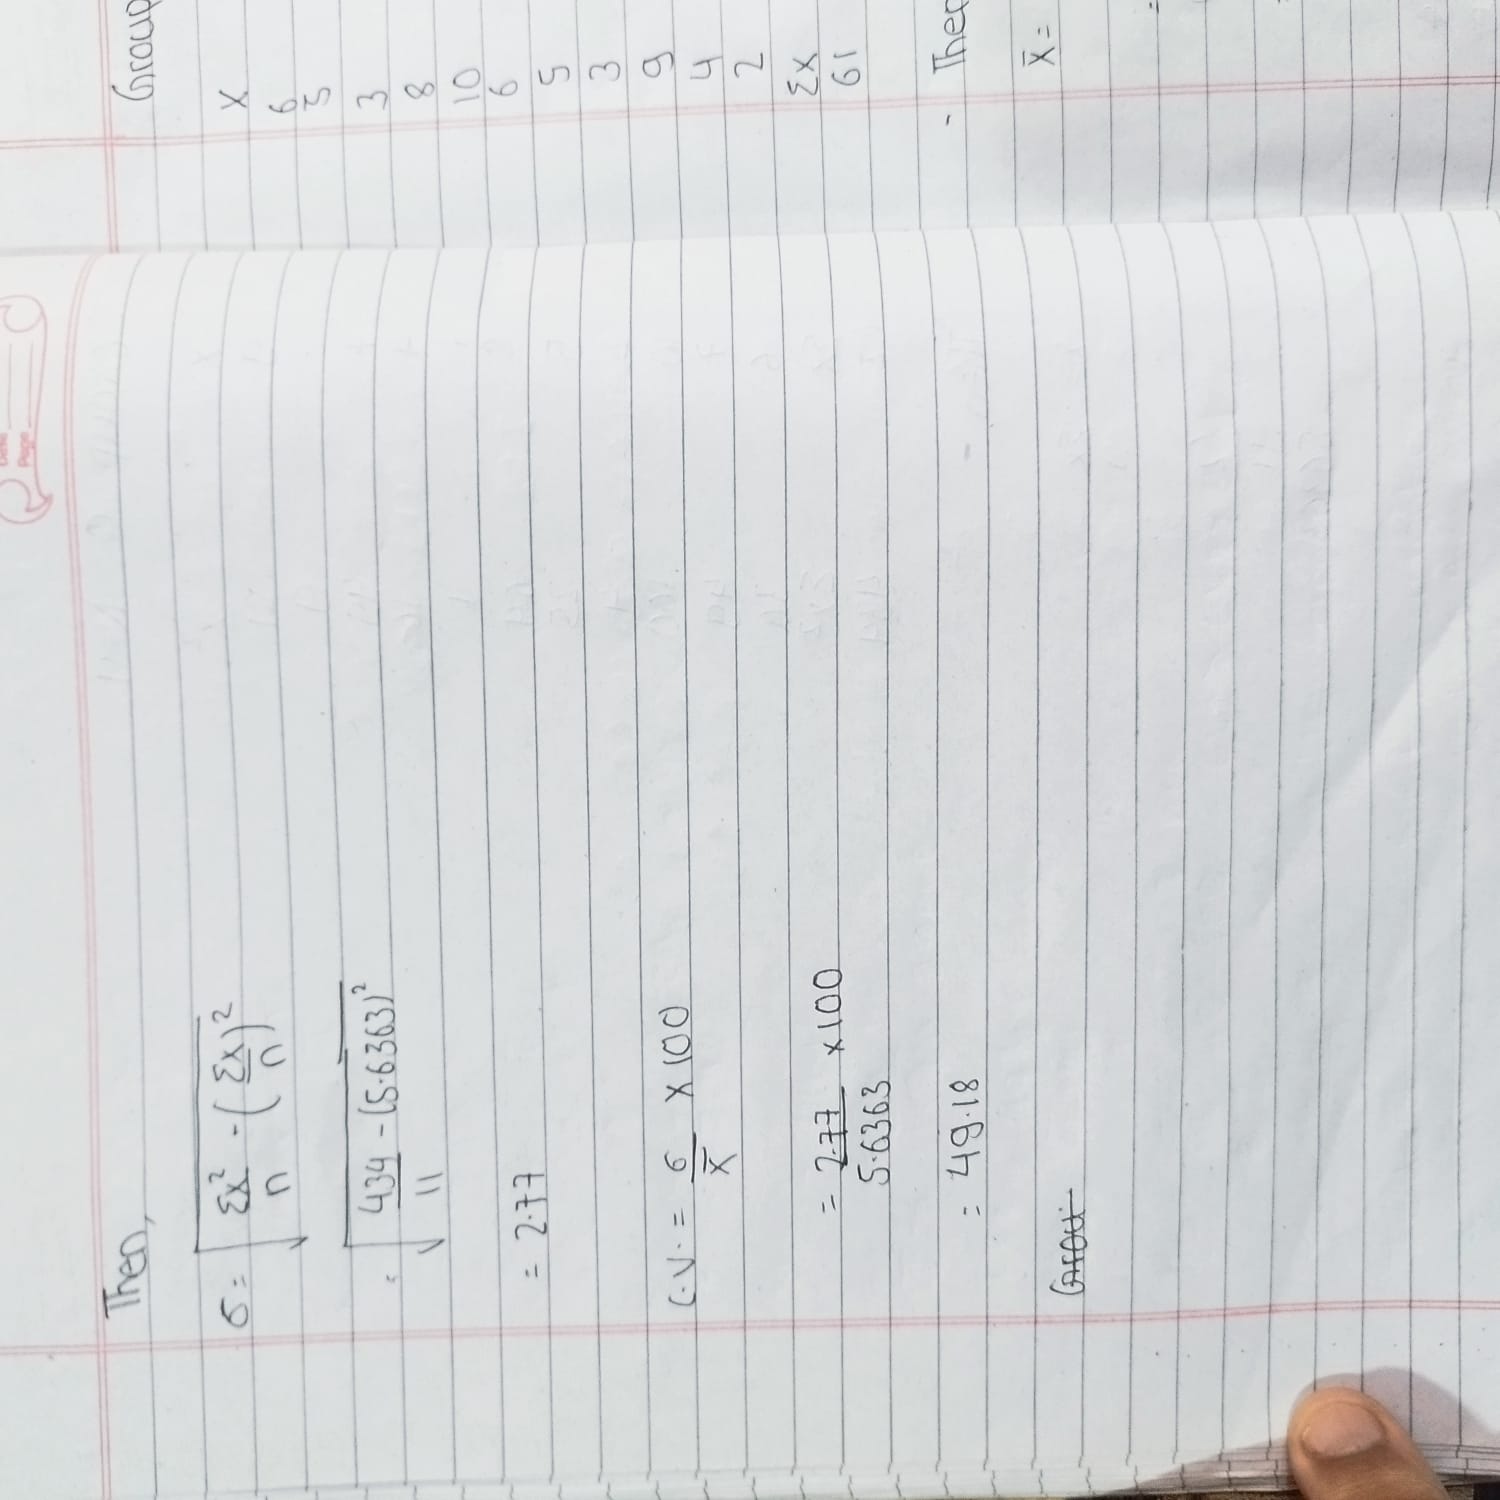 Page
Then,
σ = √(Σx²/n - (Σx/n)²)
= √(434/11 - (5.6363)²)
= 2.77
C.V. = σ/x̄ × 100
= 2.77/5.6363 × 100
= 49.18
Group
X
6
5
3
8
10
6
5
3
9
4
2
Σx
61
x̄ =